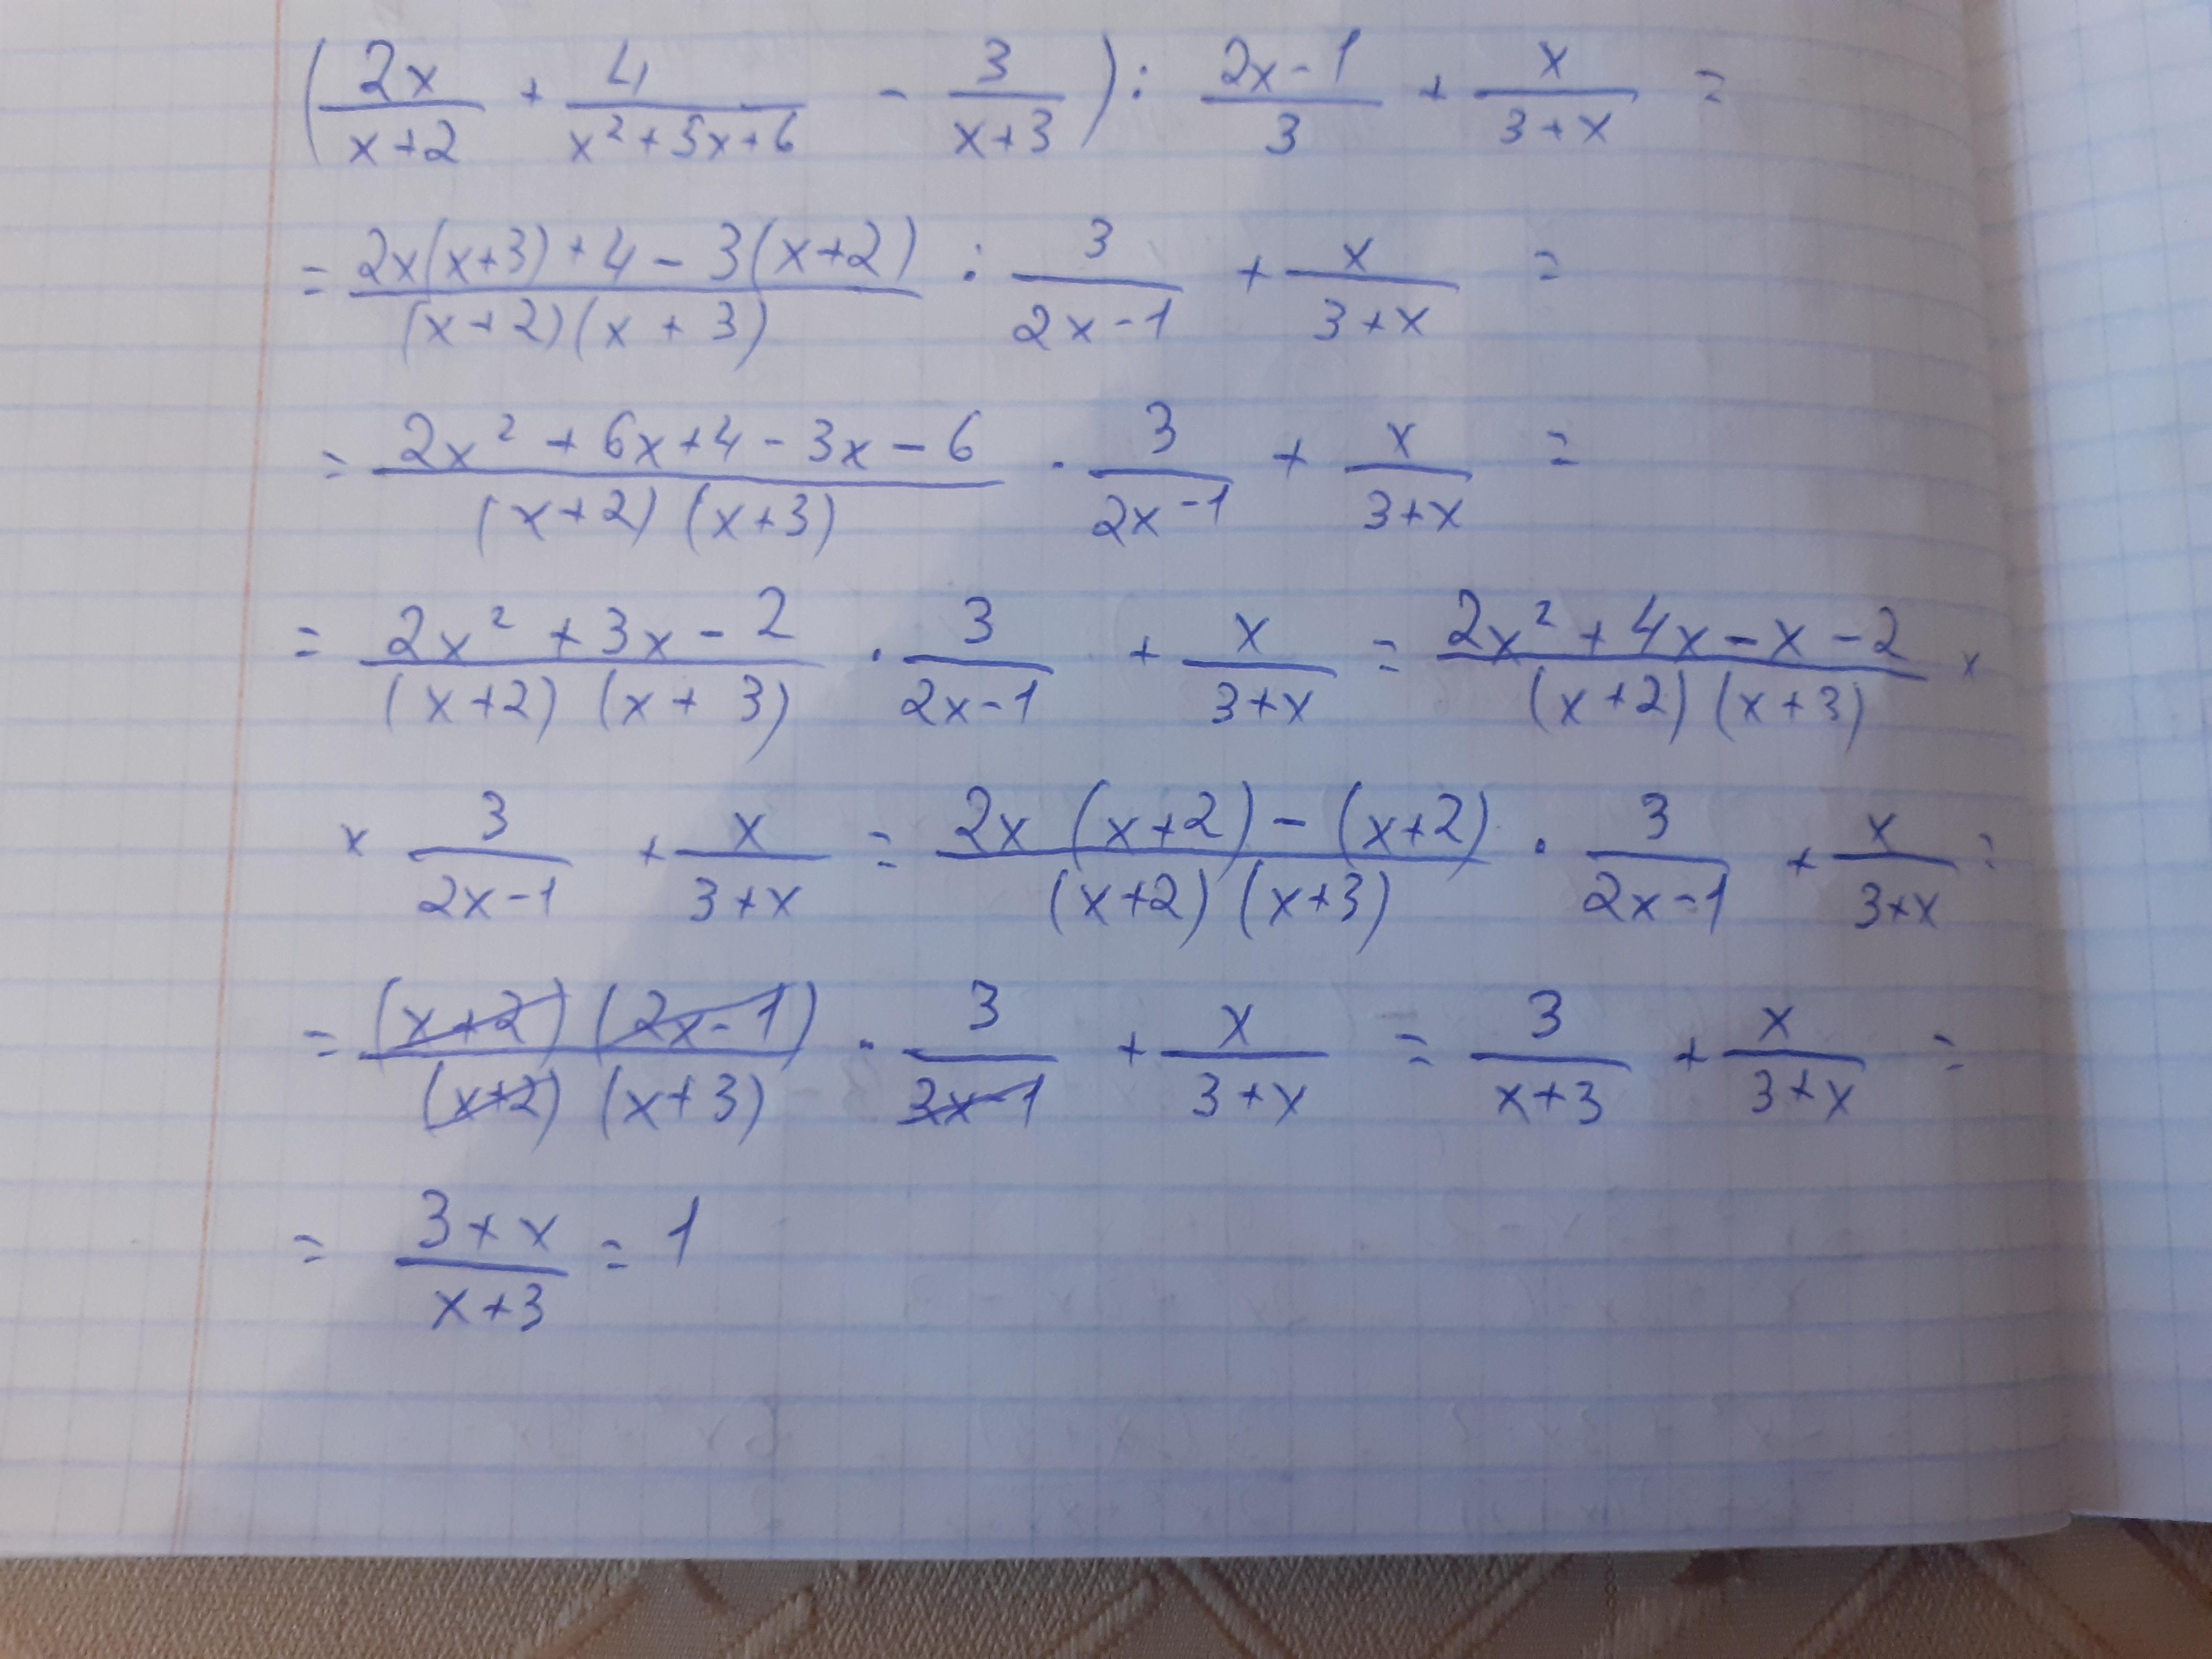 (2x/(x+2) + 4/(x²+5x+6) - 3/(x+3)) : (2x-1)/3 + x/(3+x) =
= (2x(x+3)+4-3(x+2))/((x+2)(x+3)) : 3/(2x-1) + x/(3+x) =
= (2x²+6x+4-3x-6)/((x+2)(x+3)) · 3/(2x-1) + x/(3+x) =
= (2x²+3x-2)/((x+2)(x+3)) · 3/(2x-1) + x/(3+x) = (2x²+4x-x-2)/((x+2)(x+3)) ×
× 3/(2x-1) + x/(3+x) = (2x(x+2)-(x+2))/((x+2)(x+3)) · 3/(2x-1) + x/(3+x) =
= ((x+2)(2x-1))/((x+2)(x+3)) · 3/(2x-1) + x/(3+x) = 3/(x+3) + x/(3+x) =
= (3+x)/(x+3) = 1